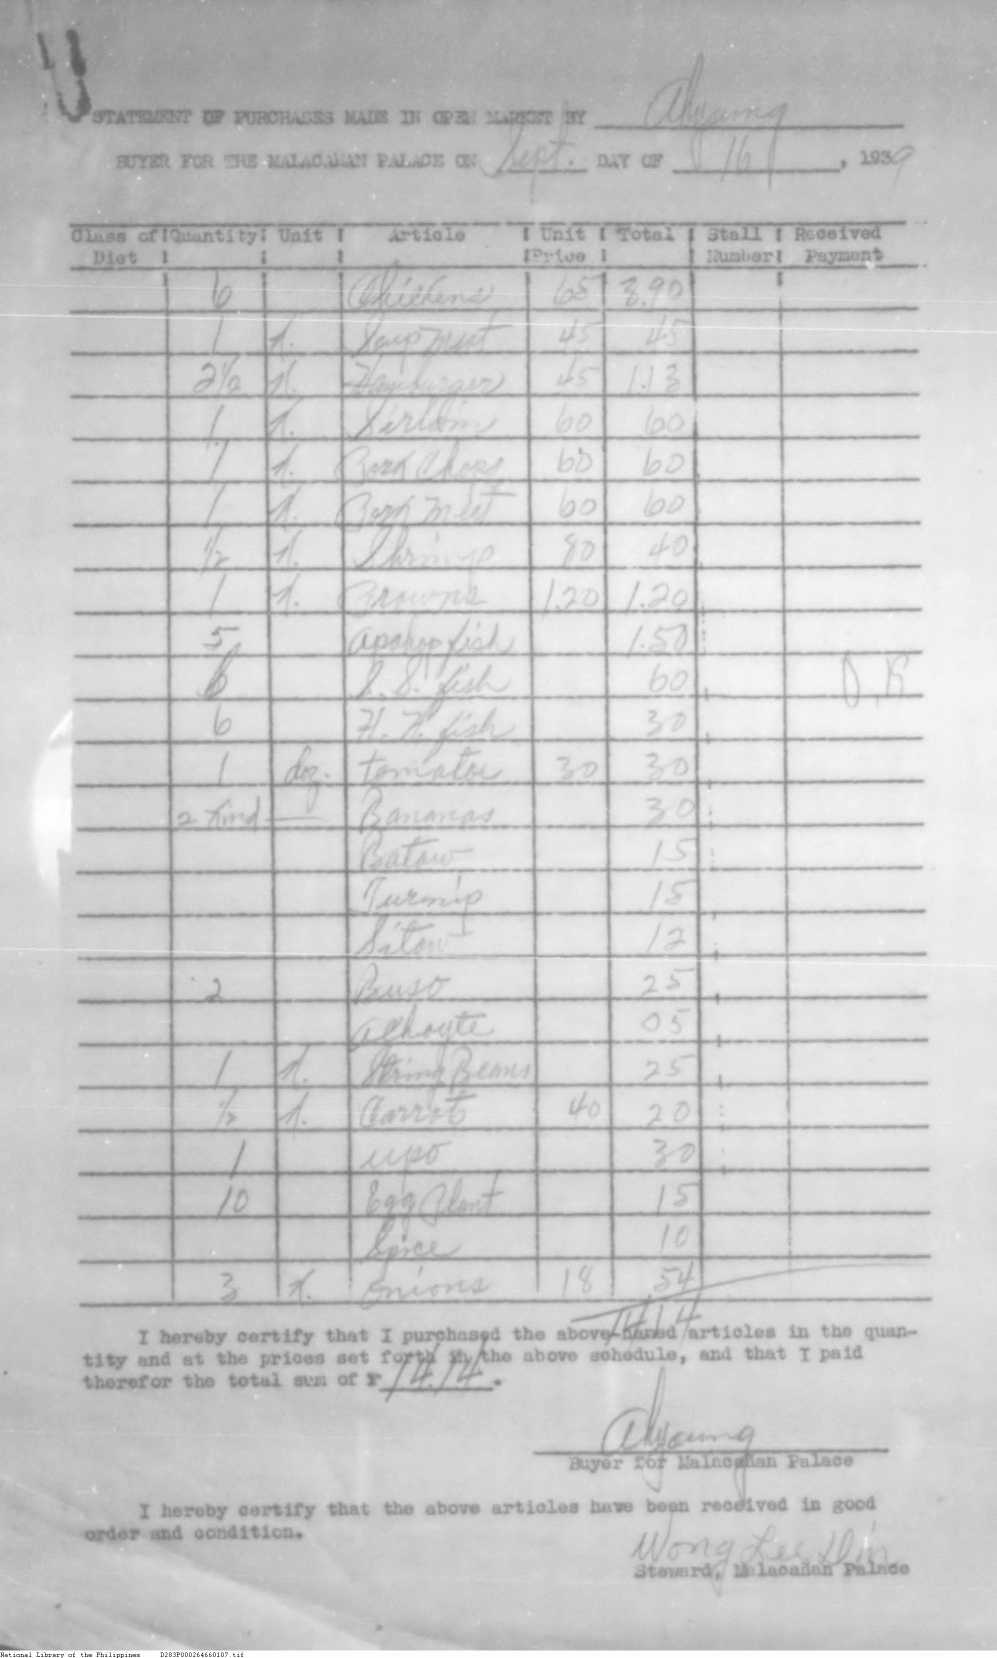 STATEMENT OF PURCHASES MADE IN OPEN MARKET BY Ahyoung
BUYER FOR THE MALACAÑAN PALACE ON Sept. DAY OF 16, 1939
Class of Diet Quantity Unit Article Unit Price Total Stall Number Received Payment
6 Chickens 65 3.90
1 k. Soup meat 45 45
2 1/2 k. Hamburger 45 1.13
1 k. Sirloin 60 60
1 k. Pork Chops 60 60
1 k. Pork meat 60 60
1/2 k. Shrimps 80 40
1 k. Prowns 1.20 1.20
5 apahap fish 1.50
6 S. S. fish 60
6 H. H. fish 30
1 doz. tomatoe 30 30
2 kind Bananas 30
Bataw 15
Turnip 15
Sitaw 12
2 Puso 25
05
1 k. String Beans 25
1/2 k. Carrot 40 20
1 upo 30
10 Egg Plant 15
Spice 10
3 k. onions 18 .54
14.14
I hereby certify that I purchased the above-named articles in the quan-
tity and at the prices set forth in the above schedule, and that I paid
therefor the total sum of ₱ 14.14.
Ahyoung
Buyer for Malacañan Palace
I hereby certify that the above articles have been received in good
order and condition.
Wong Lee
Steward, Malacañan Palace
National Library of the Philippines D283P000264660107.tif